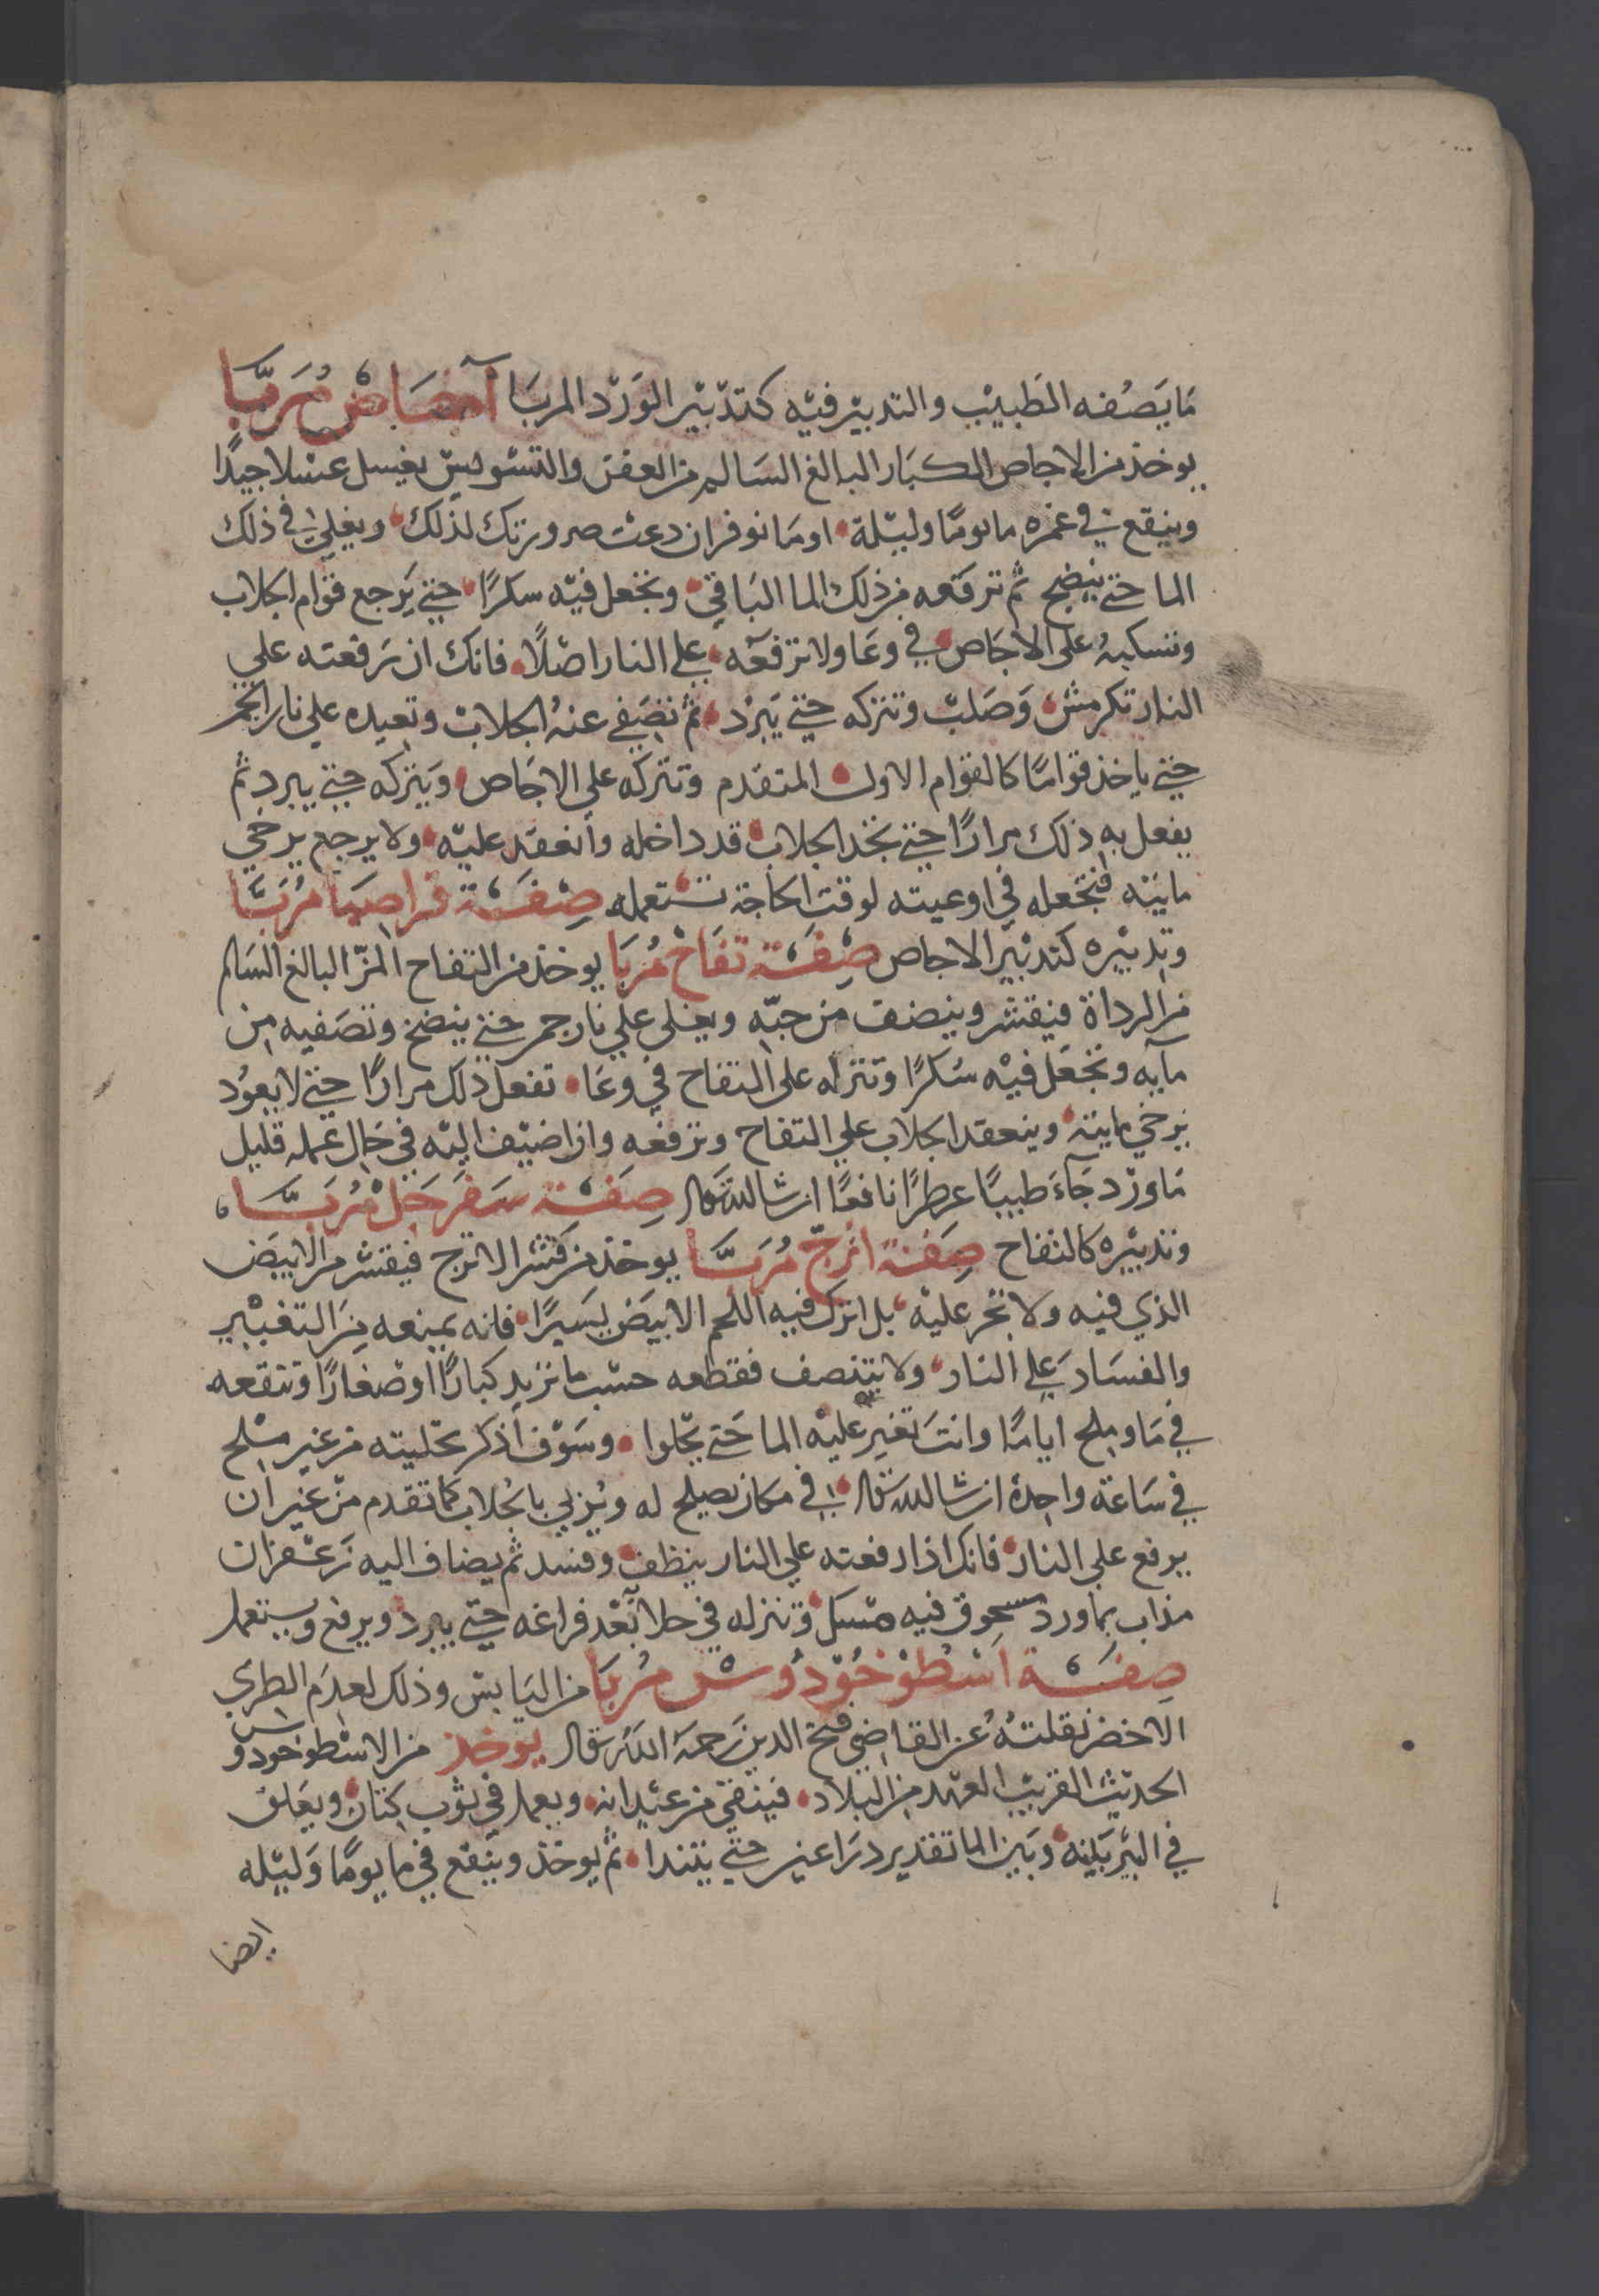 مَا يَصُفه الطَبيبْ والتدبيْر فيْه كتدْبيْر الوَرْد المربَا اَجَاصْ مُرَبَّا
يوخذ من الاجاص الكبَار البالغ السَالم من العفن والتسْوسْ يغسل غسْلا جيدًا
وينقع في غمره ما يومًا وليْلة او مَا نوفر ان دعت ضرورتك لذلك ويغلي في ذلك
الما حتي ينضج ثم ترفعه من ذلك الما البَاقي وتجعل فيْه سكرًا حتي يَرجع قوام الجلاب
وتسكبهُ على الاجَاص في وعَا ولا ترفعْه علي النار اصْلًا فانك ان رَفعته علي
النار تكرمش وَصَلبْ وتتركه حتي يَبرْد ثم تصَفي عنهُ الجلابْ وتعيده علي نار الجمر
حتي ياخذ قوامًا كالقوام الاول المتقدم وتتركه علي الاجَاص ويَتركه حتي يبرد ثم
يفعل به ذلك مرارًا حتي تجد الجلاب قد داخله وانعقد عليْه ولا يرجع يرخي
مايَته فتجْعله في اوعيته لوقت الحاجة تستعمله صِفَة قراصيَا مُربَّا
وتدبيْره كتدبيْر الاجاص صِفَة تفاحْ مُربَا يوخذ من التفاح المزّ البالغ السَالم
من الرداة فيقشر وينضف من حبّه ويغلى علي نار جمر حتي ينضج وتصَفيه من
مآيه وتجْعَل فيْه سُكرًا وتتركه على التفاح في وعَا تفعل ذلك مرارًا حتي لا يعوُد
يرخي مايته وينعقد الجلاب علي التفاح وترفعه وان اضيْف اليْه في حَال عمله قليل
مَا ورْد جَآءَ طيبًا عطرًا نافعًا ان شا الله تعَالى صِفَة سَفرجَلْ مُربَّا
وتدبيْره كالتفاح صِفة اترجّ مُرَبَّا يوخذ من قشر الاترج فيقشر من الابيَض
الذي فيه ولا تجر عليْه بل اترك فيه اللحم الابيَض يسَيرًا فانه يمنعه من التغييْر
والفسَاد عَلي النار ولا يتنصف فقطعه حسْب ما تريد كبارًا اوْ صغارًا وتنقعه
في مَا وملح ايامًا وانتَ تغير عليْه الما حَتي يحْلوا وسَوْف أذكر تحْليته من غير ملح
في سَاعة واحِدة ان شا الله تعالى في مكان يصلح له ويُربي بالجُلاب كما تقدم منْ غير ان
يرفع علي النار فانك اذا رفعته علي النار ينظف وفسد ثم يضاف اليه زَعْفران
مذاب بماورد مسحوق فيه مسك وتنزله في حلا بَعْد فراغه حتي يبرد ويرفع ويستعمل
صِفَة اسْطُوْخُوْدُوسْ مُربَا من اليَابسْ وذلك لعدَم الطري
الاخضر نقلتُهُ عن القاضي فتح الدين رَحمَهُ اللهُ تعالى يوخذ من الاسْطوخودوس
الحديْث القريبْ العهد من البلاد فينقي من عيْدانه ويعمل في ثوْب كتان ويعَلق
في البيْر بَيْنه وبَيْن الما تقدير درَاعين حتي يتندا ثم يوخذ وينقع في ما يومًا وَليْله
ايضا